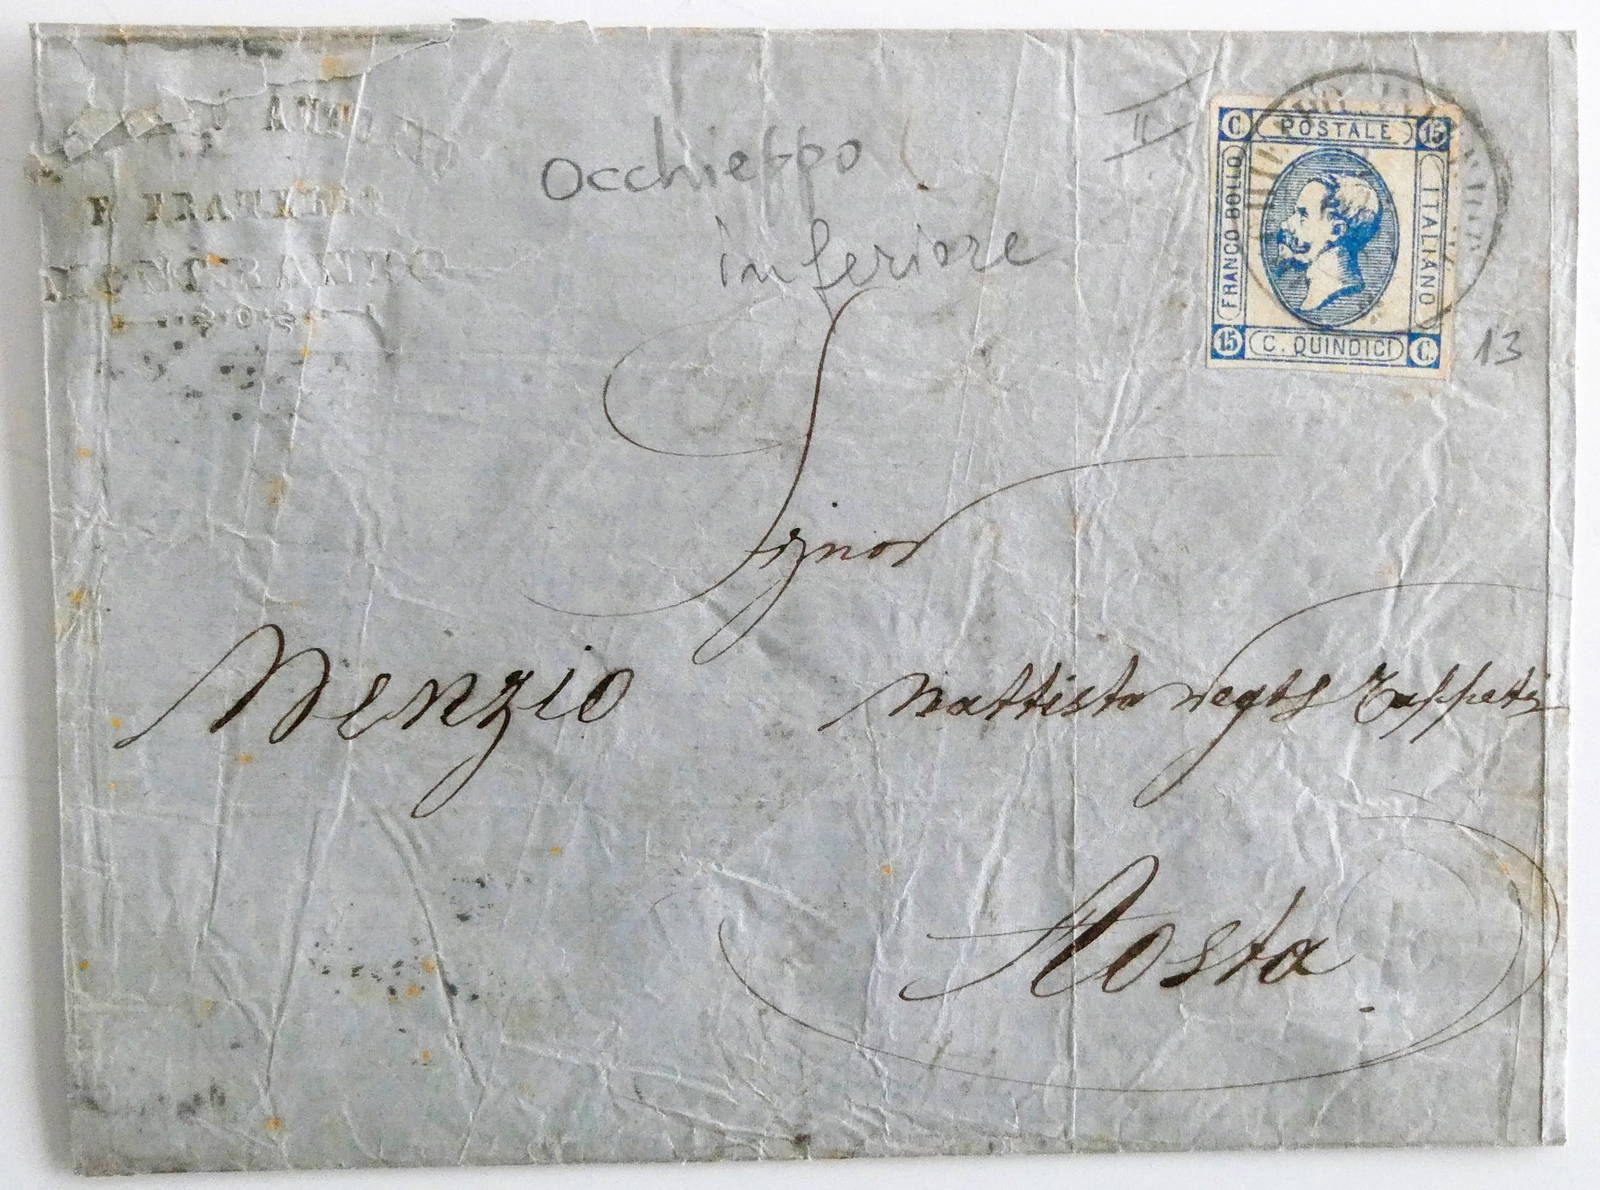 E FRATELLO
MONGRANDO
Occhieppo
inferiore
II
C. POSTALE 15
FRANCO BOLLO
ITALIANO
15 C. QUINDICI C.
13
Signor
Menzio Battista Negte Tappeti
Aosta